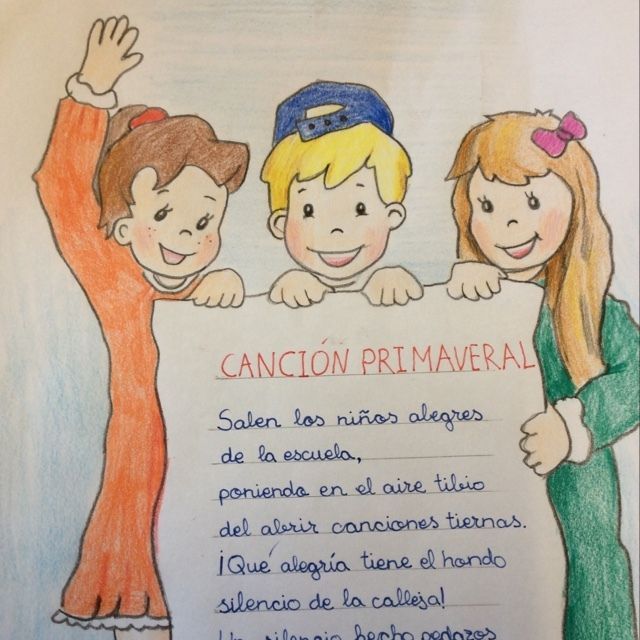 CANCIÓN PRIMAVERAL
Salen los niños alegres
de la escuela,
poniendo en el aire tibio
del abrir canciones tiernas.
¡Qué alegría tiene el hondo
silencio de la calleja!
Un silencio hecho pedazos